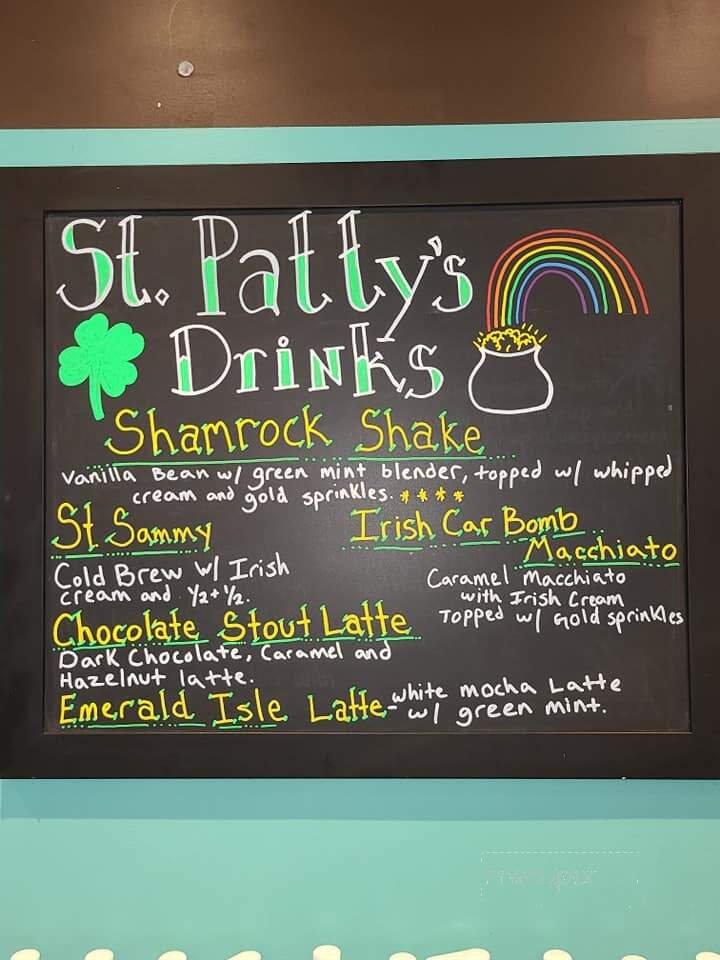 St. Patty's
Drinks
Shamrock Shake
Vanilla Bean w/ green mint blender, topped w/ whipped
cream and gold sprinkles. ****
St. Sammy
Cold Brew w/ Irish
cream and ½+½.
Irish Car Bomb
Macchiato
Caramel Macchiato
with Irish Cream
Topped w/ Gold sprinkles
Chocolate Stout Latte
Dark Chocolate, Caramel and
Hazelnut latte.
Emerald Isle Latte - white mocha Latte
w/ green mint.